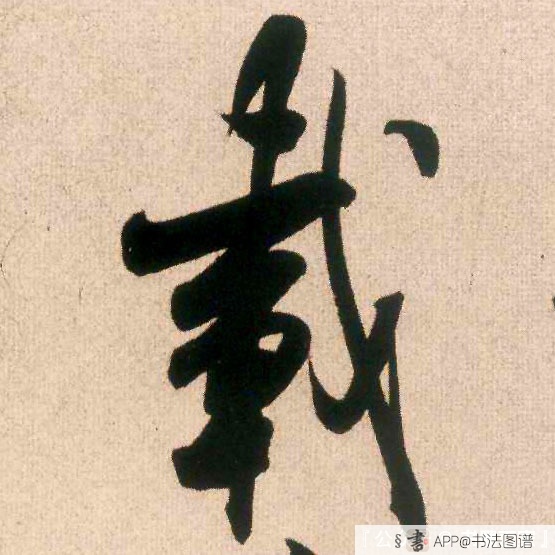 載
§書 APP@书法图谱